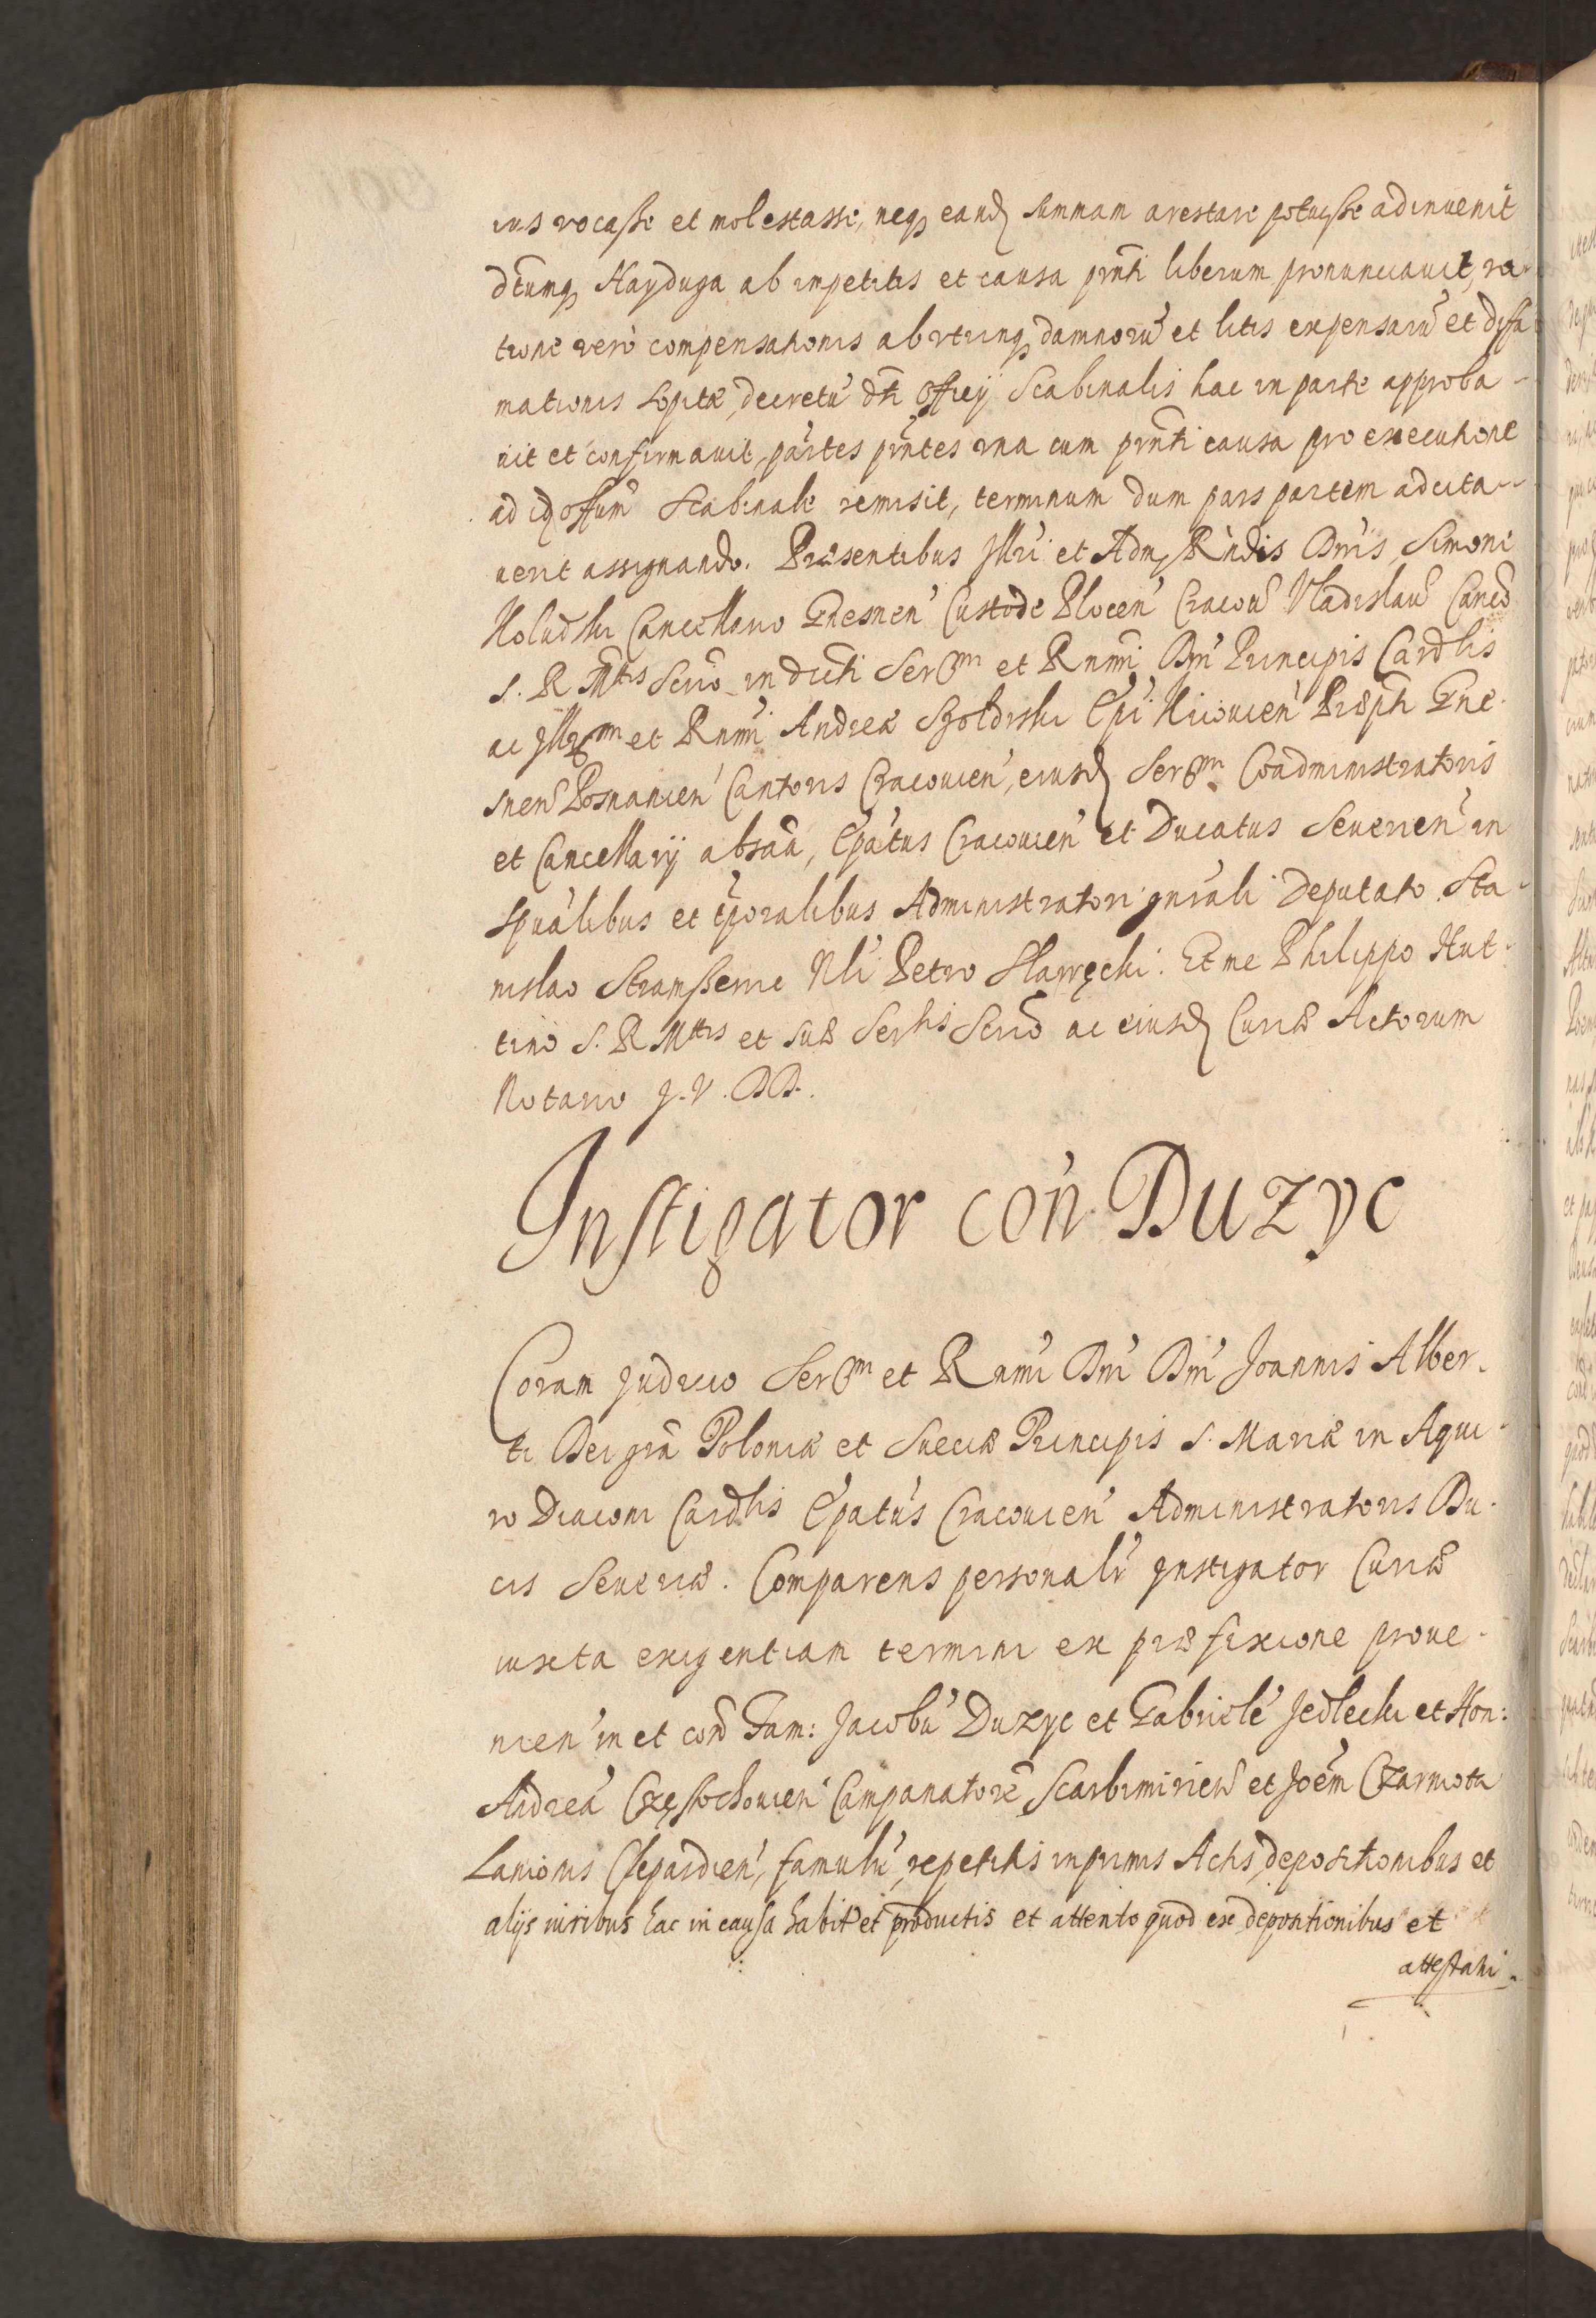 ius vocaße et molestasse, neq₃ eand₃ summam arestare potuiße adinuenit
dt̃umq₃ Hayduga ab impetitis et causa pñti liberum pronunciauit, ra-
tione verò compensationis ab vtrinq₃ damnorũ et litis expensarũ et diffa-
mationis sopitæ, decretũ dt̃i Officij Scabinalis hac in parte approba-
uit et confirmauit, partes pñtes vna cum pñti causa pro executione
ad id₃ offũm Scabinale remisit, terminum dum pars partem adcita-
uerit assignando. Præsentibus Jllri et Adm₃ Rñdis Dñis Simone
Koludzki Cancellario Gnesneñ Custode Ploceñ Cracoũ Vladislaũ Canco
S. R. Mttis Scrio in dicti Serᵐⁱ et Rnmi Dñi Principis Cardlis
ac Jllrᵐⁱ et Rnmi Andreæ Szołdrski Epi Kiiouieñ Præpti Gne-
sneñ Posnanieñ Cantoris Cracouieñ, eiusd₃ Serᵐⁱ Coadministratoris
et Cancellarij absãa, Epatus Cracouieñ et Ducatus Seuerieñ in
spualibus et tporalibus Administratori gnrali Deputato. Sta-
nislao Stramßerne Nli Petro Sławęcki. Et me Philippo Hut-
tino S. R. Mttis et suæ Sertis Scrio ac eiusd₃ Curiæ Actorum
Notario J. V. DD.
Jnstigator coñ Duzyc
Coram Judicio Serᵐⁱ et Rnmi Dñi Dñi Joannis Alber-
ti Dei grã Poloniæ et Sueciæ Principis S. Mariæ in Aqui-
ro Diaconi Cardlis Epatus Cracouieñ Administratoris Du-
cis Seueriæ. Comparens personalr Jnstigator Curiæ
iuxta exigentiam termini ex præfixione proue-
nieñ in et coñ Fam: Jacobũ Duzyc et Gabrielẽ Jedlecki et Hon:
Andreã Częstochouieñ Campanatorẽ Scarbimirieñ et Joẽm Czarnota
Lanionis Clepardieñ, famulũ, repetitis inprimis Actis, depositionibus et
alijs iuribus hac in causa habit₃ et productis et attento quod ex depositionibus et
attestati-